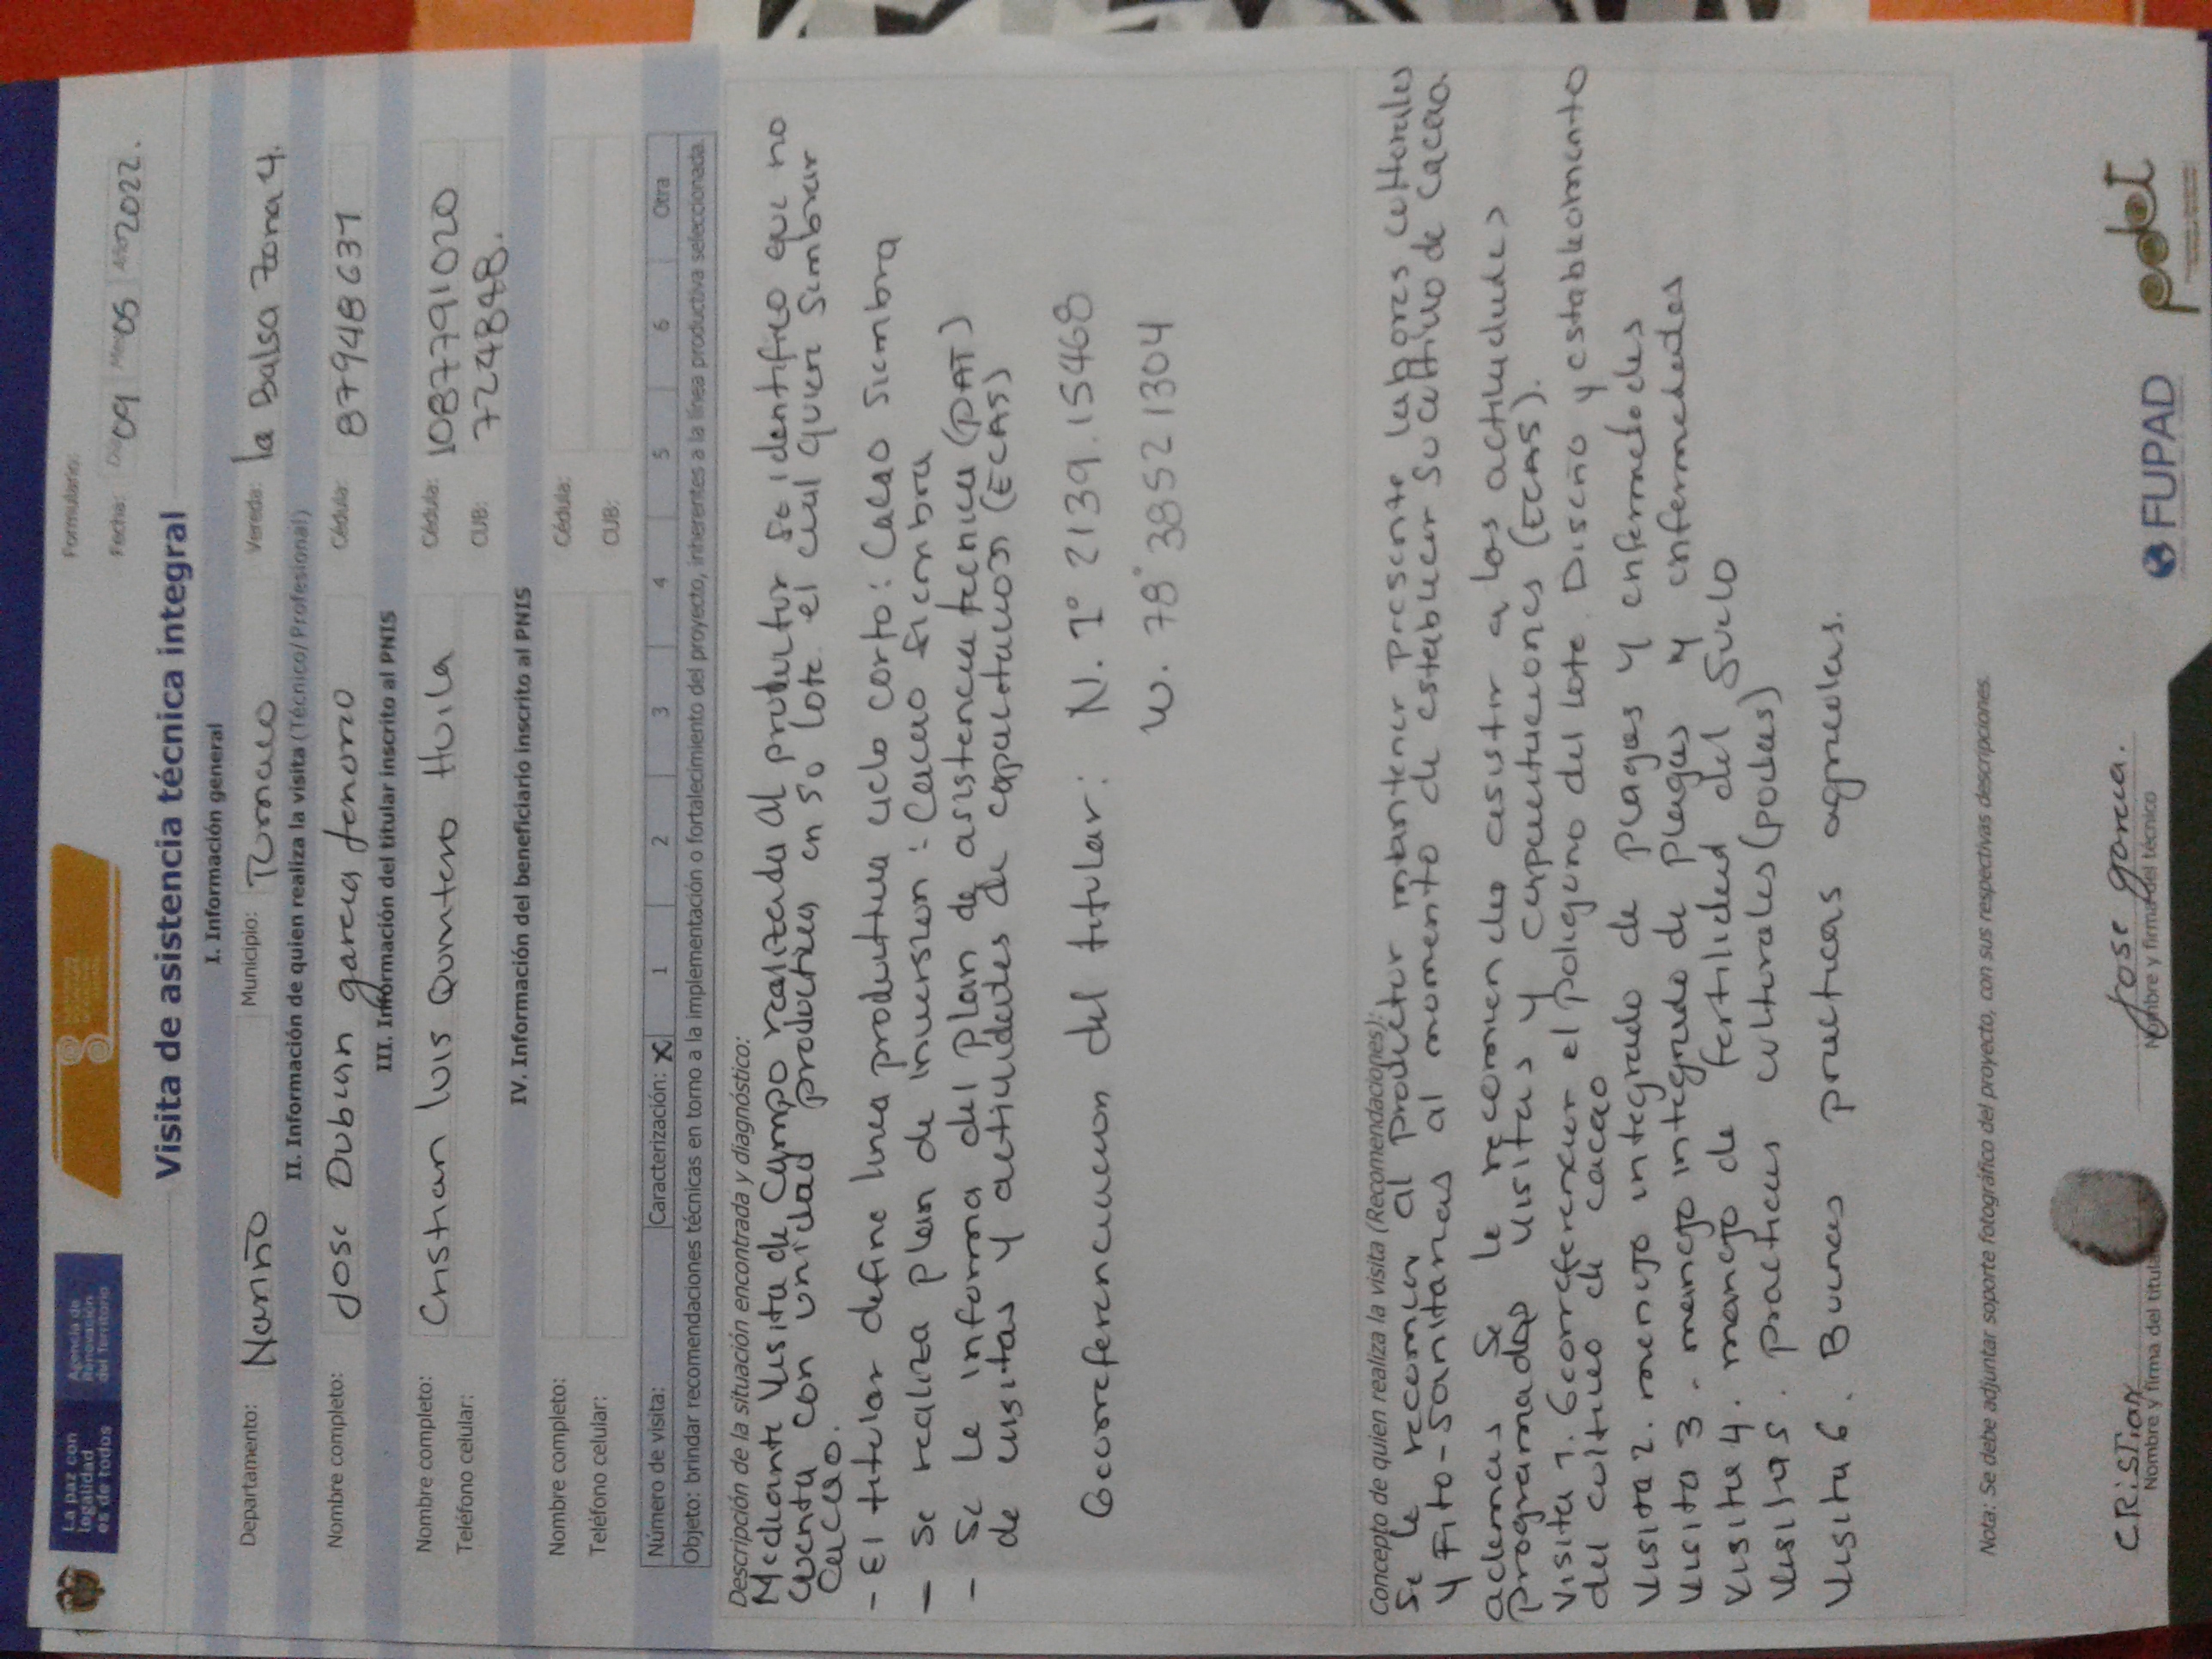 La paz con
legalidad
es de todos
Agencia de
Renovación
del Territorio
Formulario:
Fecha: Día 09 Mes 05 Año 2022.
Visita de asistencia técnica integral
I. Información general
Departamento: Nariño Municipio: Tumaco Vereda: la Balsa Zona 4.
II. Información de quien realiza la visita (Técnico/Profesional)
Nombre completo: Jose Duban garcia tenorio Cédula: 87948631
III. Información del titular inscrito al PNIS
Nombre completo: Cristhian luis Quintero Huila Cédula: 1087791020
Teléfono celular: CUB: 724848.
IV. Información del beneficiario inscrito al PNIS
Nombre completo: Cédula:
Teléfono celular: CUB:
Número de visita: Caracterización: X 1 2 3 4 5 6 Otra
Objeto: brindar recomendaciones técnicas en torno a la implementación o fortalecimiento del proyecto, inherentes a la línea productiva seleccionada.
Descripción de la situación encontrada y diagnóstico:
Mediante Visita de Campo realizada al productor se identifico que no
Cuenta con unidad productiva en so lote el cual quiere Sembrar
Cacao.
- El titular define linea productiva ciclo corto: Cacao Siembra
- Se realiza Plan de inversion: Cacao Siembra
- Se le informa del Plan de asistencia tecnica (PAT)
de visitas y actividades de capacitacion (ECAS)
Georreferenciacion del titular: N. 1° 2139.15468
W. 78° 38521304
Concepto de quien realiza la visita (Recomendaciones):
Se le recomienda al productor mantener presente labores culturales
y Fito-Sanitarias al momento de establecer su cultivo de Cacao.
ademas Se le recomienda asistir a las actividades
programadas visitas y capacitaciones (ECAS).
Visita 1. Georreferenciar el poligono del lote. Diseño y establecimiento
del cultivo de cacao
Visita 2. menejo integrado de Plagas y enfermedades
Visita 3. manejo integrado de Plagas y enfermedades
Visita 4. manejo de fertilidad del Suelo
Visita 5. practicas culturales (podas)
Visita 6. Buenas practicas agricolas.
Nota: Se debe adjuntar soporte fotográfico del proyecto, con sus respectivas descripciones.
CRISTian
Nombre y firma del titular
Jose garcia.
Nombre y firma del técnico
FUPAD
pdet